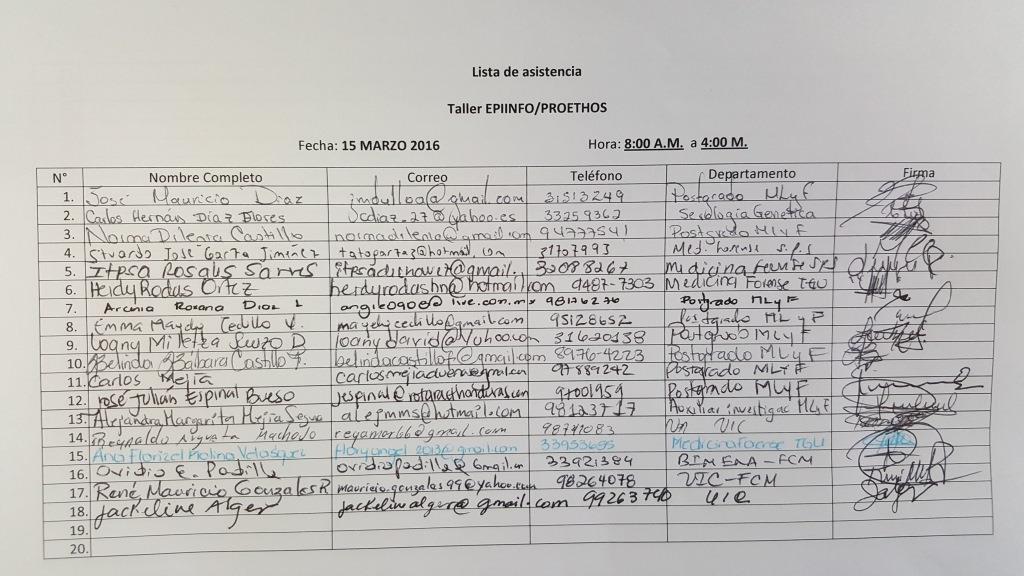 Lista de asistencia
Taller EPIINFO/PROETHOS
Fecha: 15 MARZO 2016 Hora: 8:00 A.M. a 4:00 M.
N° Nombre Completo Correo Teléfono Departamento Firma
1. José Mauricio Díaz jmdulloa@gmail.com 31513249 Postgrado MLyF
2. Carlos Hernán Díaz Flores 33259362 Serología Genética
3. Norma Dilenia Castillo normadilenia@gmail.com 94777541 Postgrado MLyF
4. José Jiménez @hotmail.com 31707993 Med. forense
5. 32088267 Medicina Forense
6. Heidy Rodas Ortez heidyrodashn@hotmail.com 9487-7303 Medicina Forense TGU
7. Roxana Diaz L 98126270 Postgrado MLyF
8. Emma Maydy Cedillo V. maydycedillo@gmail.com 95128652 Postgrado MLyF
9. Loany D. loanydavid@yahoo.com 31620138 Postgrado MLyF
10. Belinda Bárbara Castillo F. belindacastillof@gmail.com 8976-4223 Postgrado MLyF
11. Carlos Mejia 97889242 Postgrado MLyF
12. José Julian Espinal Bueso jespinal@rotaracthonduras.com 97001959 Postgrado MLyF
13. Alejandra Margarita Mejía alepmms@hotmail.com Auxiliar investigac MLyF
14. Reynaldo Machado @gmail.com 98741083 UIC
15. Ana Florizel Molina Velasquez 33953695 Medicina Forense TGU
16. Ovidio E. Padilla ovidiopadilla@gmail.com 33921384 BIMENA-FCM
17. René Mauricio Gonzales R mauricio.gonzales99@yahoo.com 98264078 UIC-FCM
18. Jackeline Alger jackelinealger@gmail.com 99263740 UIC
19.
20.